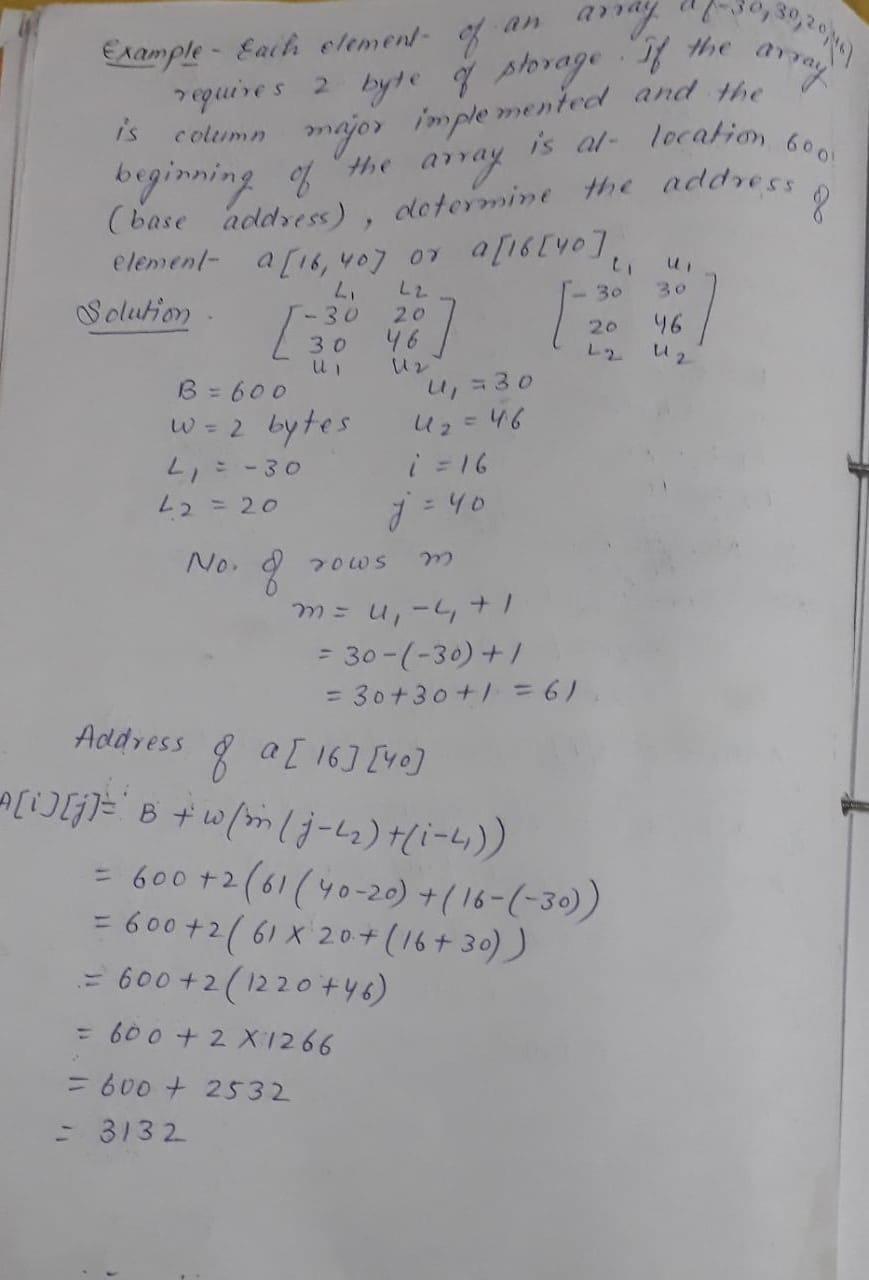 Example - Each element of an array a[-30,30,20,46]
requires 2 byte of storage. If the array
is column major implemented and the
beginning of the array is at location 600
(base address), determine the address of
element a[16,40] or a[16[40]
Solution.
L1 L2
[-30 20
30 46]
u1 u2
L1 u1
[-30 30
20 46]
L2 u2
B = 600 u1 = 30
W = 2 bytes u2 = 46
L1 = -30 i = 16
L2 = 20 j = 40
No. of rows m
m = u1 - L1 + 1
= 30-(-30)+1
= 30+30+1 = 61
Address of a[16][40]
A[i][j]= B + w(m(j-L2)+(i-L1))
= 600+2(61(40-20)+(16-(-30))
= 600+2(61 X 20+(16+30))
= 600+2(1220+46)
= 600 + 2 X 1266
= 600 + 2532
= 3132